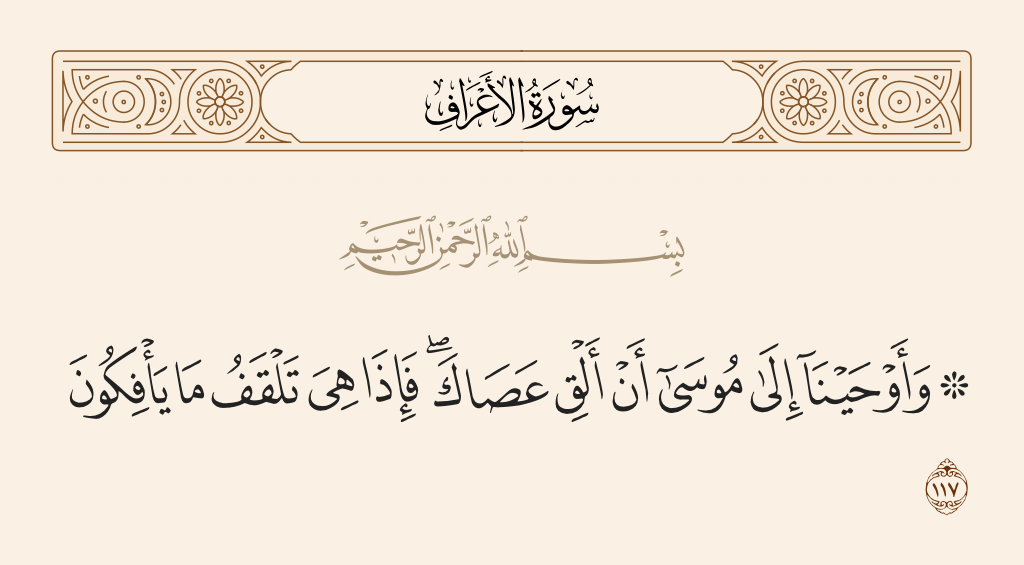 سُورَةُ الأَعْرَافِ
بِسْمِ ٱللَّهِ ٱلرَّحْمَٰنِ ٱلرَّحِيمِ
۞ وَأَوْحَيْنَآ إِلَىٰ مُوسَىٰٓ أَنْ أَلْقِ عَصَاكَ ۖ فَإِذَا هِىَ تَلْقَفُ مَا يَأْفِكُونَ
١١٧